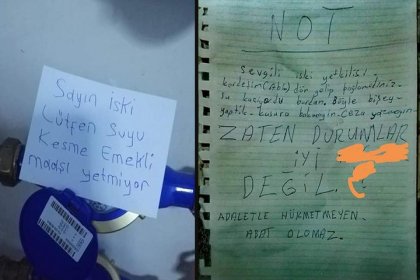 Sayın iski
Lütfen Suyu
Kesme Emekli
maaşı yetmiyor
NOT
Sevgili iski yetkilisi.
kardeşim(Abi) dün gelip bağlamıştınız.
Su kaçıyordu burdan. Böyle bişey
yaptık. kusura bakmayın. Ceza yazmayın.
ZATEN DURUMLAR
İYİ
DEĞİL.
ADALETLE HÜKMETMEYEN.
ABAT OLOMAZ.